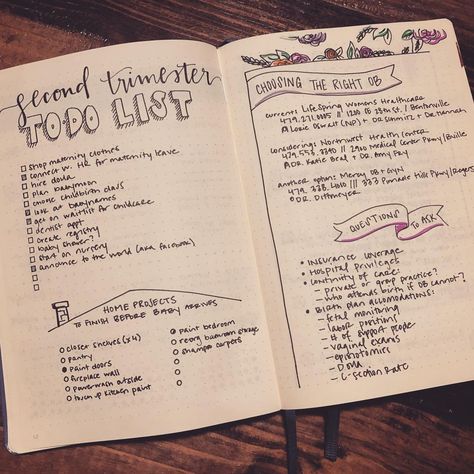 second trimester
TODO LIST
shop maternity clothes
connect w. HR for maternity leave
hire doula
plan babymoon
choose childbirth class
look at babynames
get on waitlist for childcare
dentist appt
create registry
baby shower?
start on nursery
announce to the world (aka facebook)
HOME PROJECTS
TO FINISH BEFORE BABY ARRIVES
closet shelves (x4)
pantry
paint doors
fireplace wall
powerwash outside
touch up kitchen paint
paint bedroom
reorg bathroom storage
shampoo carpets
CHOOSING THE RIGHT OB
Current: LifeSpring Womens Healthcare
479.271.0005 //
Bentonville
(NP) + DR
Considering: Northwest Health Center
2910 Medical Center Pkwy/Bville
DR Katie Beal + DR Amy
Another option: Mercy OB + GYN
Pinnacle Hills Pkwy/Rogers
DR.
QUESTIONS
TO ASK
insurance coverage
Hospital Privileges
Continuity of care:
– private or group practice?
– who attends birth if OB cannot?
Birth plan accomodations:
– fetal monitoring
– labor positions
– # of support people
– vaginal exams
– episiotomies
– C-section Rate